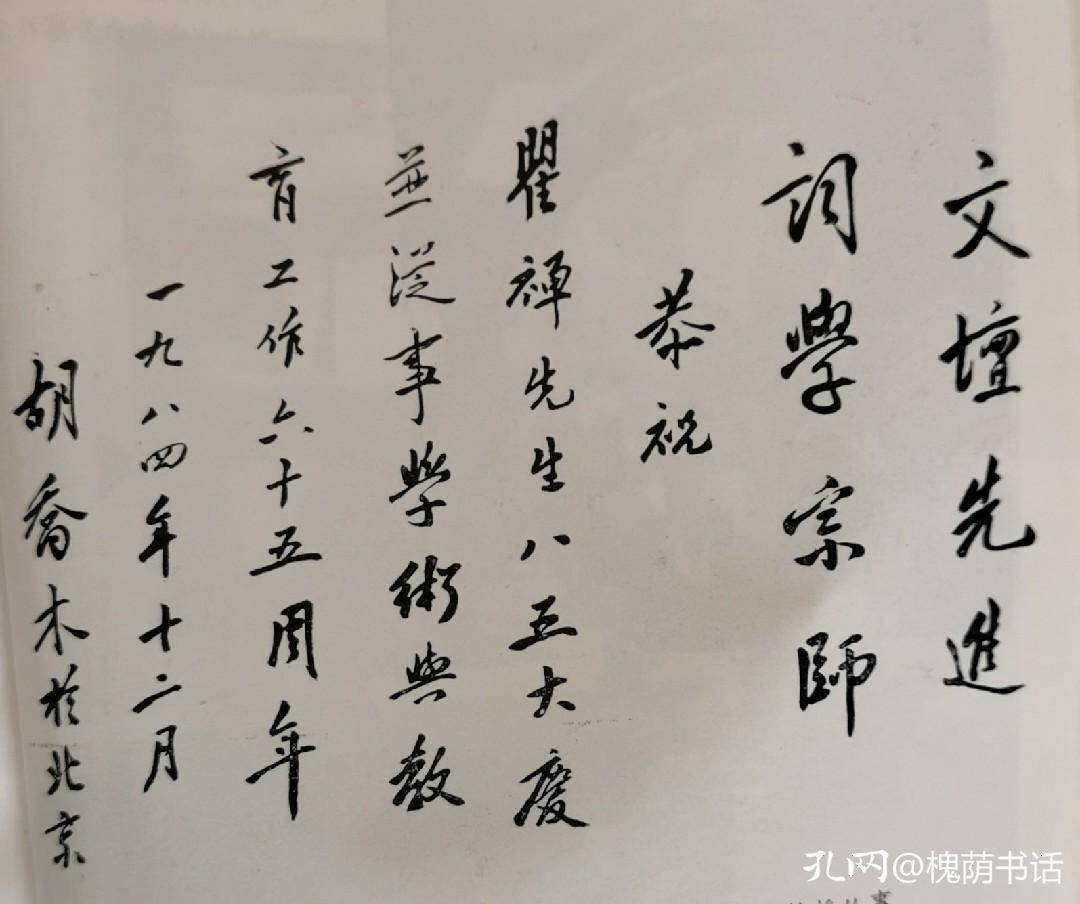 文壇先進
詞學宗師
恭祝
瞿禪先生八五大慶
並從事學術與教
育工作六十五周年
一九八四年十二月
胡喬木於北京
孔网@槐荫书话